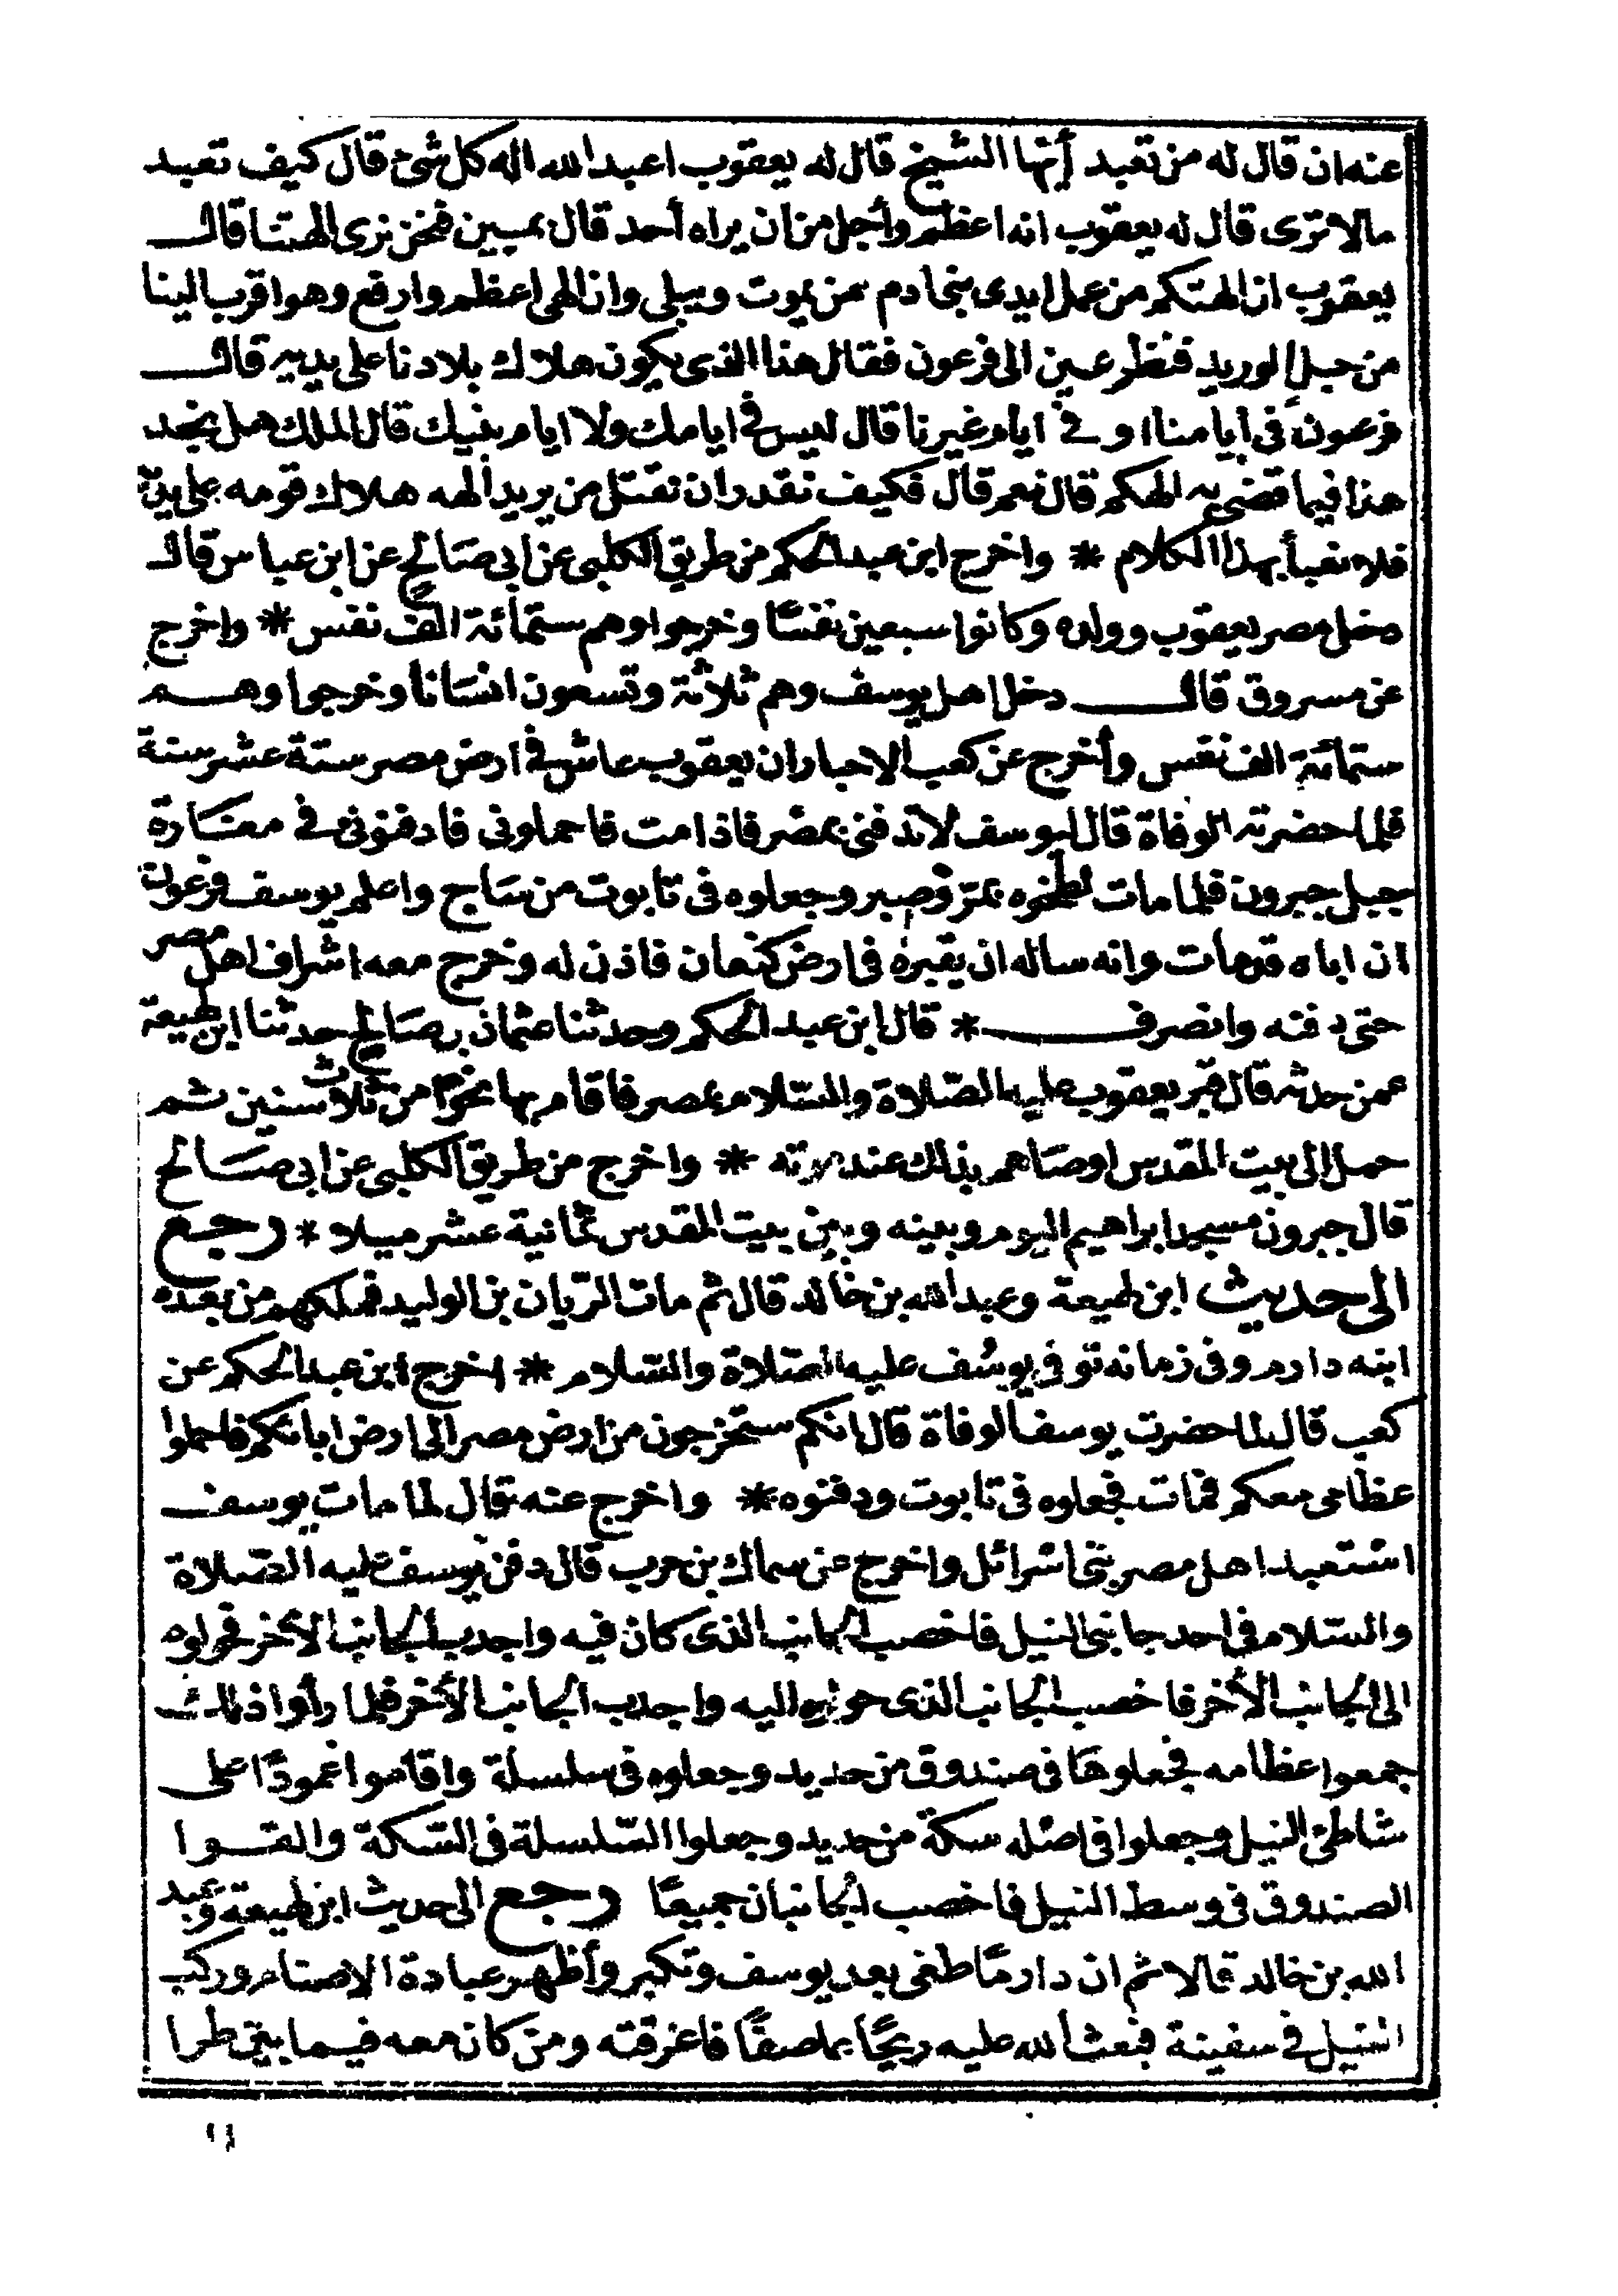 عنه ان قال له من تعبد أيها الشيخ قال له يعقوب اعبد الله اله كل شئ قال كيف تعبد
مالا ترى قال له يعقوب انه اعظم وأجل من ان يراه أحد قال بمبين فنحن نرى الهتنا قال
يعقوب ان الهتكم من عمل ايدى بنى ادم من يموت ويبلى وان الهى اعظم وارفع وهو اقرب الينا
من حبل الوريد فنظر عين الى فرعون فقال هذا الذى يكون هلاك بلادنا على يديه قال
فرعون فى أيامنا او فى ايام غيرنا قال ليس فى ايامك ولا ايام بنيك قال الملك هل تجد
هذا فيما قضى به الهكم قال نعم قال فكيف نقدر ان نقتل من يريد الهه هلاك قومه على يديه
فلا نعبأ بهذا الكلام * واخرج ابن عبد الحكم من طريق الكلبى عن ابى صالح عن ابن عباس قال
دخل مصر يعقوب وولده وكانوا سبعين نفسًا وخرجوا وهم ستمائة الف نفس * واخرج
عن مسروق قال دخل اهل يوسف وهم ثلاثة وتسعون انسانا وخرجوا وهم
ستمائة الف نفس وأخرج عن كعب الاحبار ان يعقوب عاش فى ارض مصر ستة عشر سنة
فلما حضرته الوفاة قال ليوسف لا تدفنى بمصر فاذا مت فاحملونى فادفنونى فى مغارة
جبل حبرون فلما مات لطخوه بمرّ وصبر وجعلوه فى تابوت من ساج واعلم يوسف فرعون
ان اباه قد مات وانه ساله ان يقبره فى ارض كنعان فاذن له وخرج معه اشراف اهل مصر
حتى دفنه وانصرف * قال ابن عبد الحكم وحدثنا عثمان بن صالح حدثنا ابن لهيعة
عمن حدثه قال قبر يعقوب عليه الصّلاة والسّلام بمصر فاقام بها نحوًا من ثلاث سنين ثم
حمل الى بيت المقدس اوصاهم بذلك عند موته * واخرج من طريق الكلبى عن ابى صالح
قال حبرون مسجد ابراهيم اليوم وبينه وبين بيت المقدس ثمانية عشر ميلا * رجع
الى حديث ابن لهيعة وعبد الله بن خالد قال ثم مات الرّيان بن الوليد فملكهم من بعده
ابنه دارم وفى زمانه توفى يوسُف عليه الصّلاة والسّلام * اخرج ابن عبد الحكم عن
كعب قال لما حضرت يوسف الوفاة قال انكم ستخرجون من ارض مصر الى ارض ابائكم فاحملوا
عظامى معكم فمات فجعلوه فى تابوت ودفنوه * واخرج عنه قال لما مات يوسف
استعبد اهل مصر بنى اسرائل واخرج عن سماك بن حرب قال دفن يوسف عليه الصّلاة
والسّلام فى احد جانبى النيل فاخصب الجانب الذى كان فيه واجدب الجانب الأخر فحولوه
الى الجانب الأخر فاخصب الجانب الذى حولوه اليه واجدب الجانب الأخر فلما رأوا ذلك
جمعوا عظامه فجعلوها فى صندوق من حديد وجعلوه فى سلسلة واقاموا عمودًا على
شاطئ النيل وجعلوا فى اصله سكة من حديد وجعلوا السّلسلة فى السّكة والقوا
الصندوق فى وسط النيل فاخصب الجانبان جميعًا رجع الى حديث ابن لهيعة وعبد
الله بن خالد قالا ثم ان دارمًا طغى بعد يوسف وتكبر وأظهر عبادة الاصنام وركب
النيل فى سفينة فبعث الله عليه ريحًا عاصفًا فاغرقته ومن كان معه فيما بين طرا